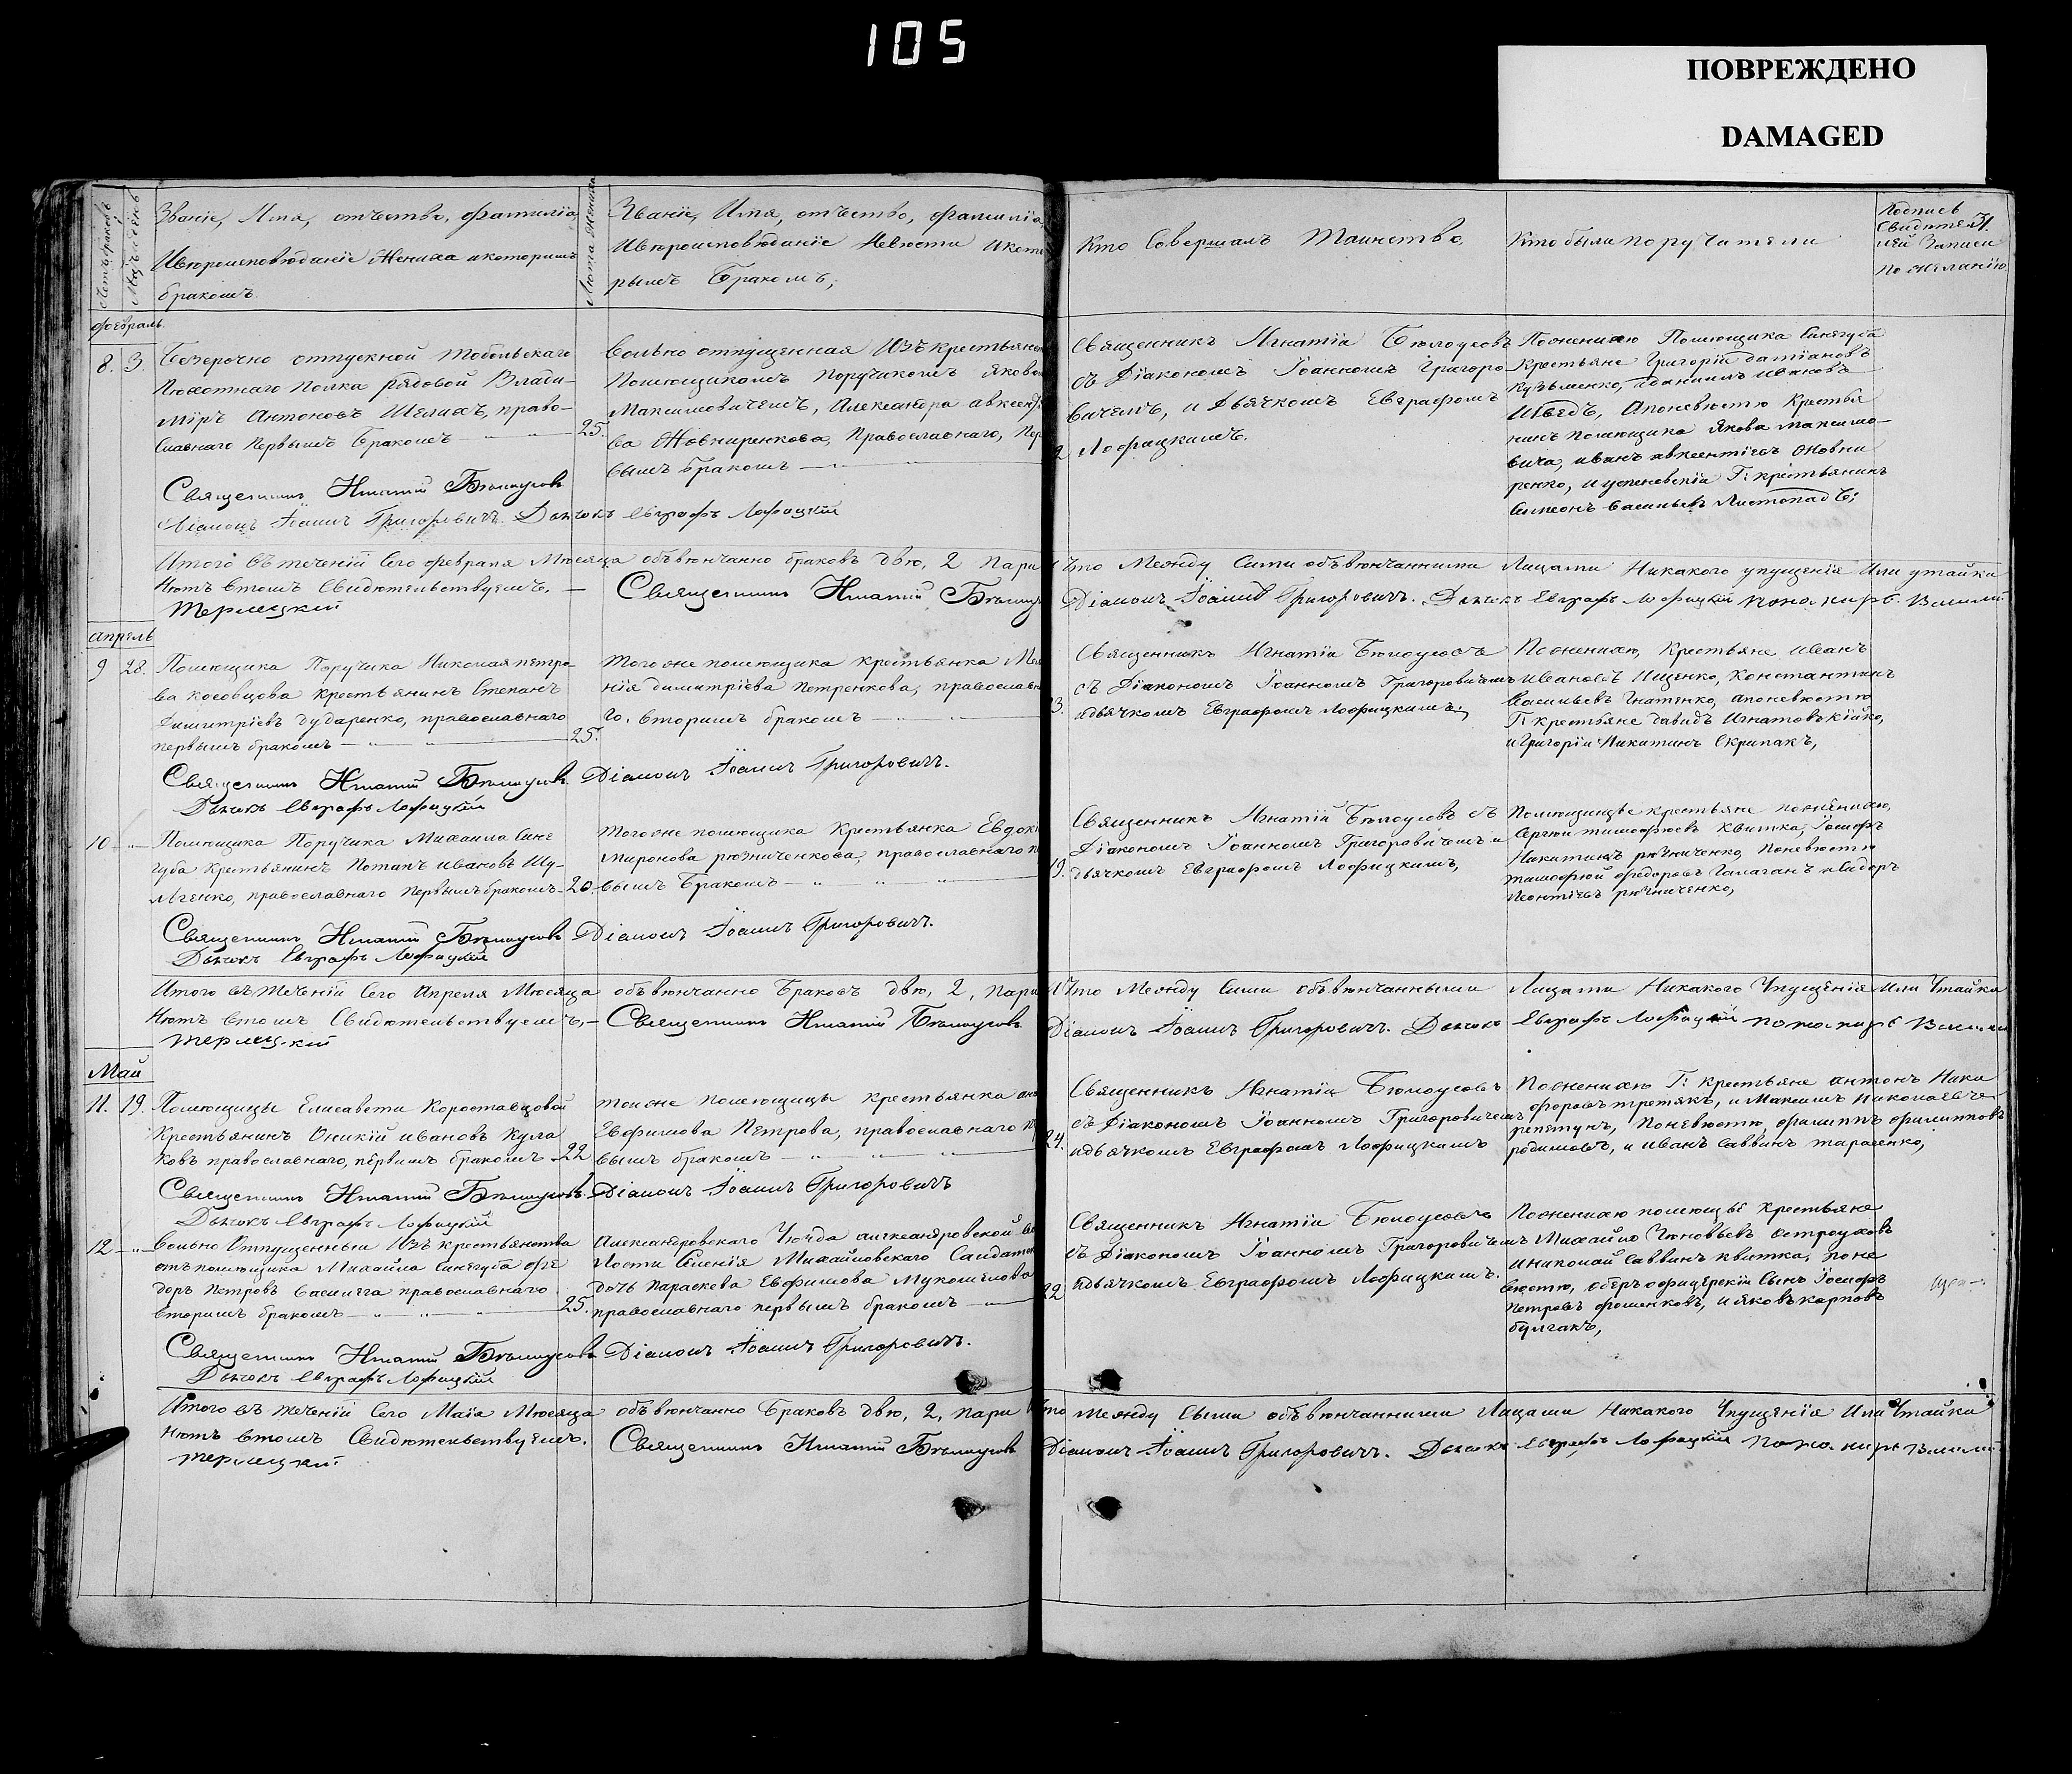 105
ПОВРЕЖДЕНО
DAMAGED
Званіе, Имя, отъество, фамилія,
Ивѣроисповѣданіе Жениха икоторимъ
бракомъ.
Званіе, Имя, отъество, фамилія
Ивѣроисповѣданіе Невѣсти икото
рымъ Бракомъ,
Кто Совершалъ Таинство,
Кто были поручатели
Подпись
Свидѣтел
Записи
по желанію
февраль.
8. 3.
отпускной Тобольскаго
Пѣхотнаго Полка рядовой Влади-
міръ Антоновъ Шелихъ, право-
славнаго первымъ Бракомъ
25.
Вольно отпущенная Изъ крестьянс
Помѣщикомъ Поручикомъ Яково
Максимовичемъ, Александра авксент
ва Жовниренкова, Православнаго, Пер
вымъ бракомъ
Священникъ Игнатій Бѣлоусовъ
съ Діакономъ Іоанномъ Григоро
вичемъ, и Дьячкомъ Евграфомъ
Лофицкимъ.
Поженихю Помѣщика Синегуба
Крестьяне Григорій даміановъ
Кузьменко, иданіилъ ивановъ
Шведъ, Апоневѣстю Крестья
нинъ помѣщика Якова максимо-
вича, иванъ авксентіевъ Жовни
ренко, и Г: крестьянинъ
Симеонъ васильевъ Листопадъ;
Священникъ Игнатій Бѣлоусовъ
Діаконъ Іоаннъ Григоровичъ. Дьячокъ Евграфъ Лофицкій
Итого Въ теченіи Сего февраля Мѣсяца объвѣнчанно браковъ двѣ, 2 пари что Между Сими объвѣнчанними Лицами Никакого упущенія Или утайки
Нѣтъ втомъ Свидѣтельствуемъ. Священникъ Игнатій Бѣлоусов Діаконъ Іоаннъ Григоровичъ. Дьячокъ Евграфъ Лофицкій
Терлецкій
апрель
9 28.
Помѣщика Поручика Николая петро-
ва косовцова крестьянинъ Степанъ
Димитріевъ дударенко, православнаго
первымъ бракомъ
25.
Того же помѣщика крестьянка Мела
нія димитріева петренкова, православна
го, вторимъ бракомъ
Священникъ Игнатій Бѣлоусовъ
съ Діакономъ Іоанномъ Григоровичемъ
идьячкомъ Евграфомъ Лофицкимъ.
Поженихю, Крестьяне иванъ
ивановъ Ищенко, Константинъ
васильевъ Гнатенко, апоневѣстю
Г: крестьяне давидъ Игнатовъ кійко,
иГригорій Никитинъ Скрипакъ,
Священникъ Игнатій Бѣлоусовъ. Діаконъ Іоаннъ Григоровичъ.
Дьячокъ Евграфъ Лофицкій
10
Помѣщика Поручика Михаила Сине
губа крестьянинъ Потапъ ивановъ Шу-
лженко, православнаго Первымъ бракомъ
20.
Того же помѣщика Крестьянка Евдокі
Миронова рѣзниченкова, православнаго п
вымъ Бракомъ
19.
Священникъ Игнатій Бѣлоусовъ съ
Діакономъ Іоанномъ Григоровичемъ и
дьячкомъ Евграфомъ Лофицкимъ,
Помѣщицѣе крестьяне поженихю,
Сергѣй тимофѣевъ Квитка, Іосифъ
Никитинъ рѣзниченко, поневѣстю
тимофѣй федоровъ Галаганъ
Леонтіевъ рѣзниченко,
Священникъ Игнатій Бѣлоусовъ Діаконъ Іоаннъ Григоровичъ.
Дьячокъ Евграфъ Лофицкій
Итого въ теченіи Сего Апреля Мѣсяца объвѣнчанно Браковъ двѣ, 2, пари Что Между Сими объвѣнчанными Лицами Никакого Упущенія или Утайки
Нѣтъ втомъ Свидѣтельствуемъ, Священникъ Игнатій Бѣлоусовъ Діаконъ Іоаннъ Григоровичъ. Дьячокъ Евграфъ Лофицкій
Терлецкій
Май
11. 19.
Помѣщицы Елисавети Короставцовой
Крестьянинъ Оникій ивановъ Кула
ковъ православнаго, первимъ бракомъ
22
тоиже помѣщицы крестьянка
Евфимова Петрова, православнаго
вымъ бракомъ
24.
Священникъ Игнатій Бѣлоусовъ
съ Діакономъ Іоанномъ Григоровичемъ
идьячкомъ Евграфомъ Лофицкимъ
Поженихю Г: крестьяне антонъ Ники
форовъ третякъ, и Максимъ Николаевъ
репетунъ, Поневѣстю, филиппъ филипповъ
родимовъ, и иванъ саввинъ тарасенко,
Священникъ Игнатій Бѣлоусовъ. Діаконъ Іоаннъ Григоровичъ
Дьячокъ Евграфъ Лофицкій
12
Вольно Отпущенный Изъ крестьянства
отъ помѣщика Михаила Синегуба фе
доръ Петровъ православнаго
вторимъ бракомъ
25.
Александровского Уѣзда александровской
лости Селенія Михайловскаго Салдатск
дочь Параскева Евфимова Мукомелова
православнаго первымъ бракомъ
22
Священникъ Игнатій Бѣлоусовъ
съ Діакономъ Іоанномъ Григоровичемъ
идьячкомъ Евграфомъ Лофицкимъ.
Поженихю помѣщцѣ крестьяне
Михаило Остроуховъ
иниколай Саввинъ квитка, поне
вѣстю, оберъ офицерскій Сынъ Іосифъ
Петровъ фоменковъ, и яковъ карповъ
булгакъ,
Священникъ Игнатій Бѣлоусовъ Діаконъ Іоаннъ Григоровичъ.
Дьячокъ Евграфъ Лофицкій
Итого въ теченіи Сего Маія Мѣсяца объвѣнчанно Браковъ двѣ, 2, пари что между Сыми объвѣнчанними Лицами Никакого Упущенія Или Утайки
Нѣтъ втомъ Свидѣтельствуемъ. Священникъ Игнатій Бѣлоусовъ Діаконъ Іоаннъ Григоровичъ. Дьячокъ Евграфъ Лофицкій
Терлецкій.